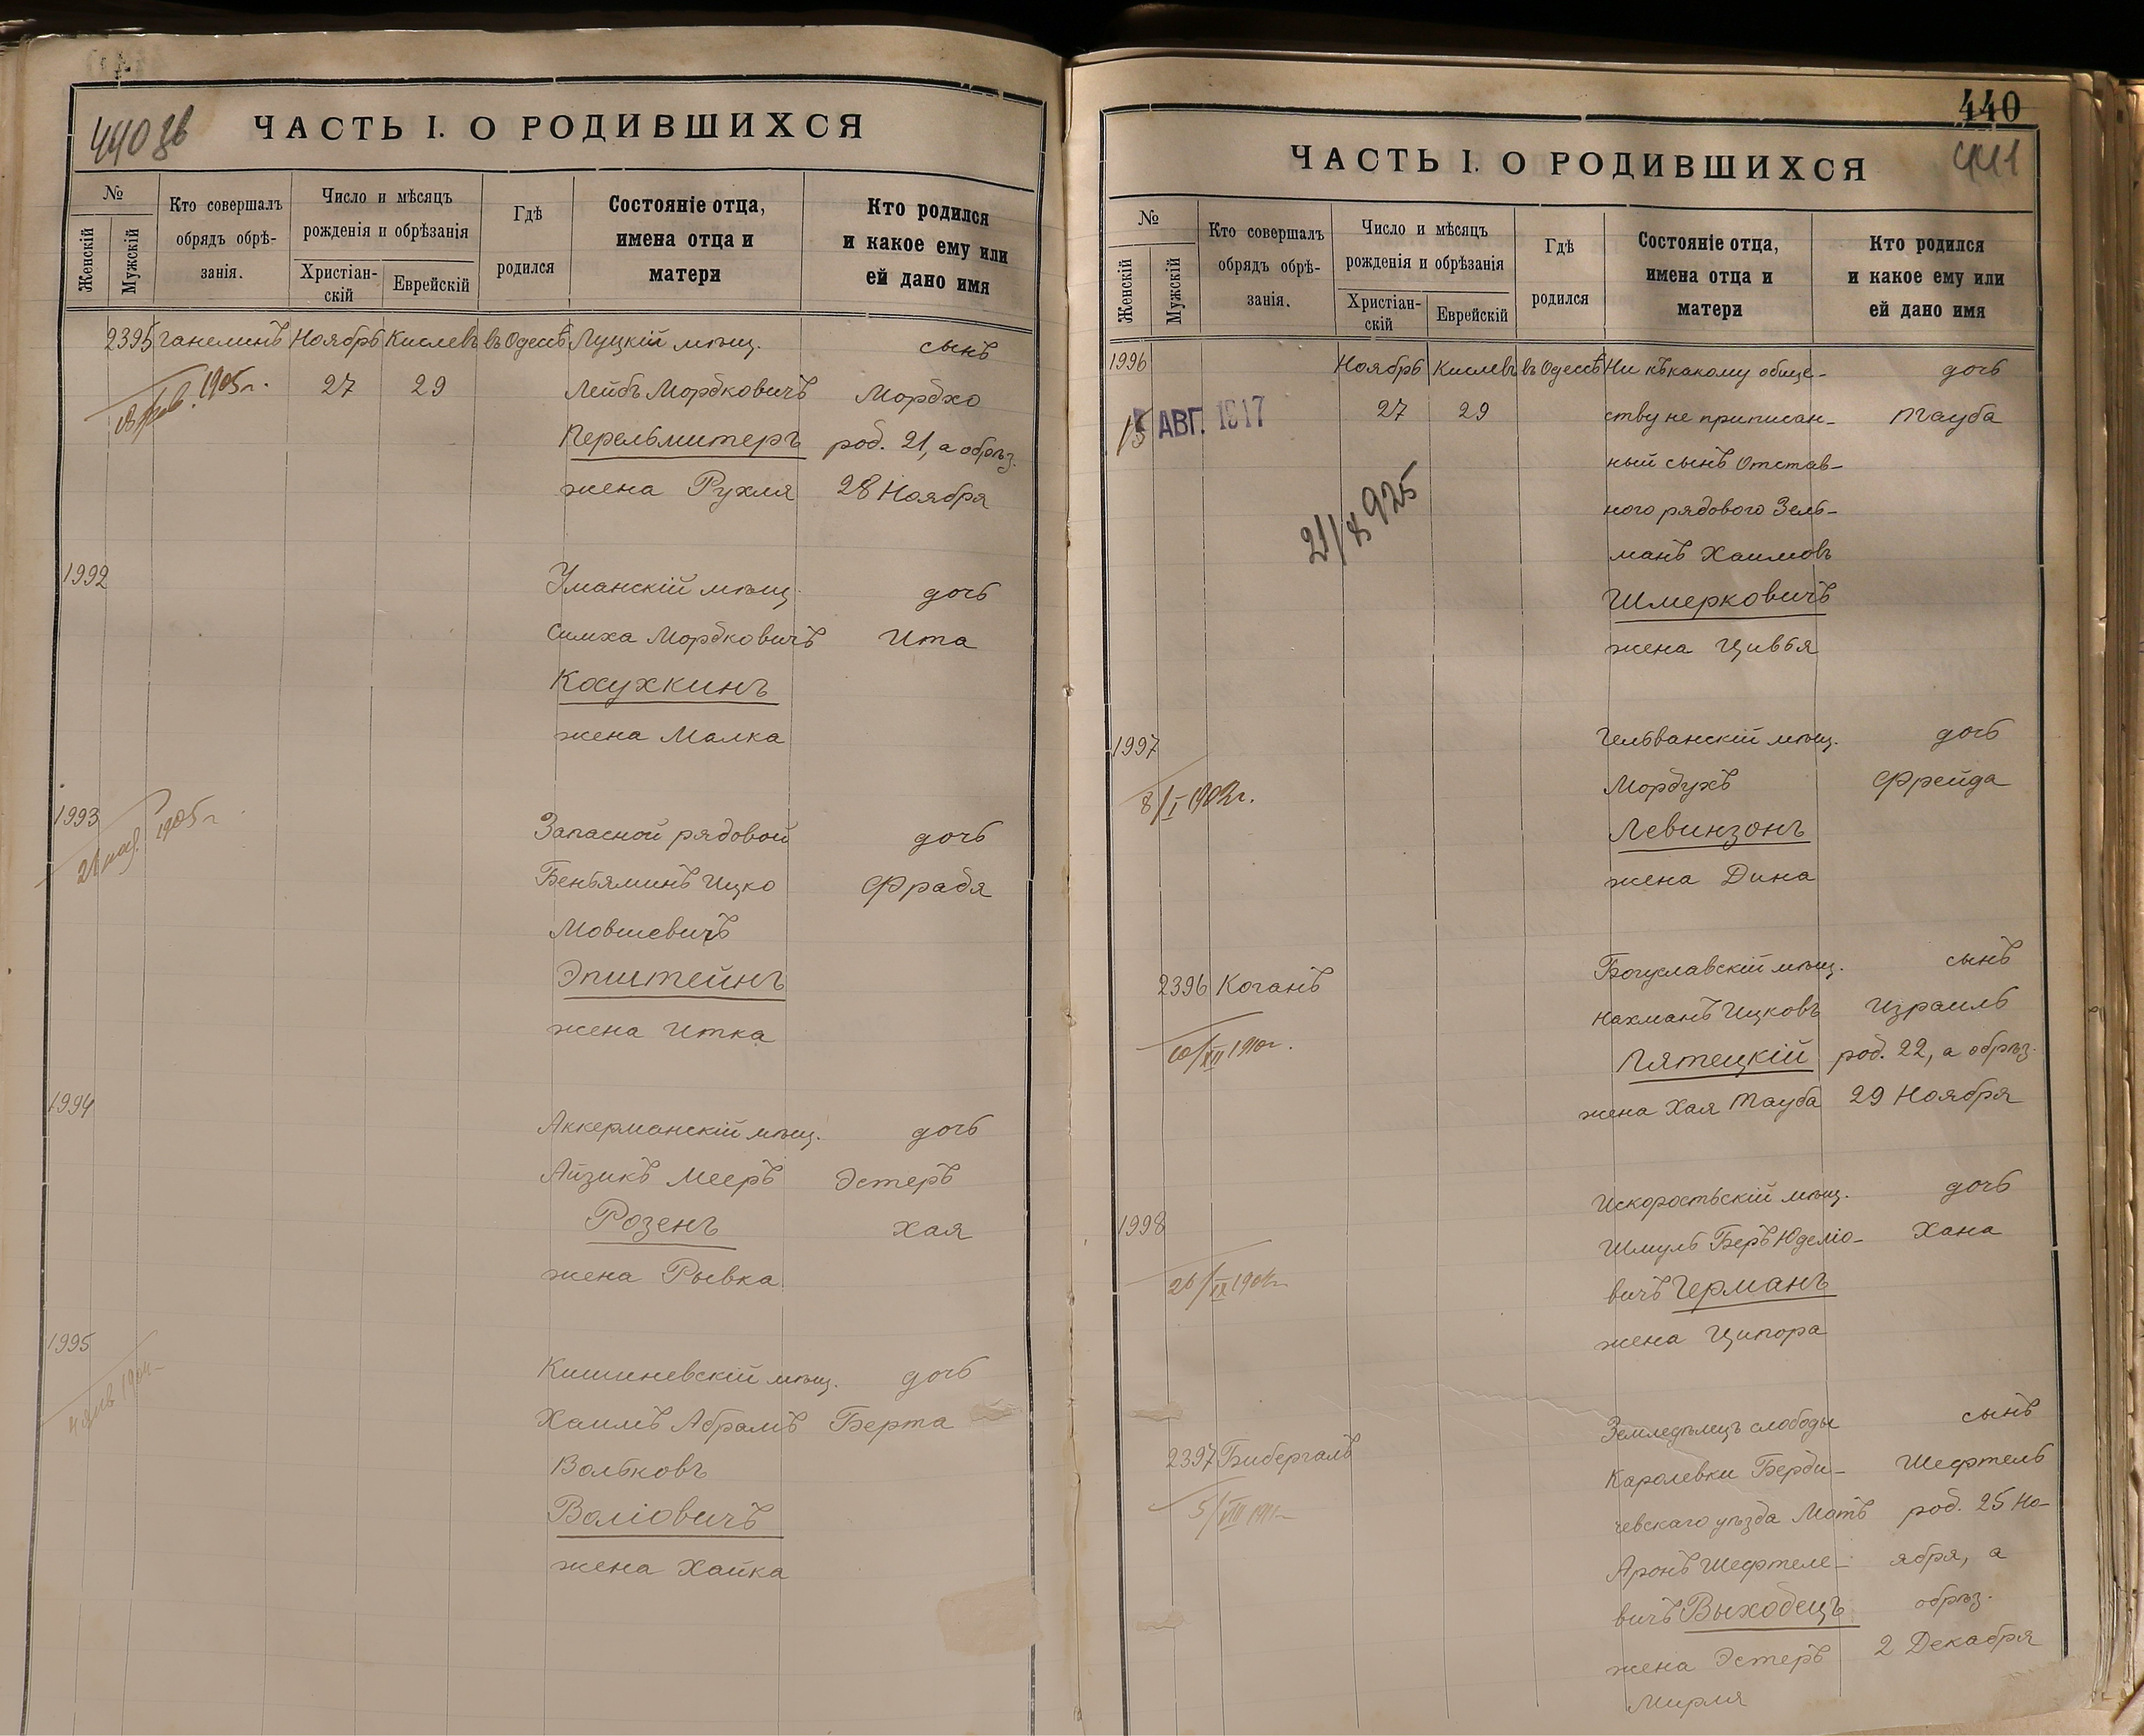 440 зв
ЧАСТЬ I. О РОДИВШИХСЯ
№
Женскій
Мужскій
Кто совершалъ
обрядъ обрѣ-
занія.
Число и мѣсяцъ
рожденія и обрѣзанія
Христіан-
скій
Еврейскій
Гдѣ
родился
Состояніе отца,
имена отца и
матери
Кто родился
и какое ему или
ей дано имя
2395 Ганелинъ Ноябрь Кислевъ въ Одессѣ Луцкій мѣщ. сынъ
1905 г. 27 29 Лейбъ Мордковичъ Мордхо
Перельмитеръ род. 21, а обрѣз.
жена Рухля 28 Ноября
1992 Уманскій мѣщ. дочь
Симха Мордковичъ Ита
Косухкинъ
жена Малка
1993 Запасной рядовой дочь
1905 г.
Беньяминъ Ицко Фрадя
Мовшевичъ
Эпштейнъ
жена Итка
1994 Аккерманскій мѣщ. дочь
Айзикъ Мееръ Эстеръ
Розенъ Хая
жена Рывка
1995 Кишиневскій мѣщ. дочь
Хаимъ Абрамъ Берта
Вольковъ
Воліовичъ
жена Хайка
440
441
ЧАСТЬ I. О РОДИВШИХСЯ
№
Женскій
Мужскій
Кто совершалъ
обрядъ обрѣ-
занія.
Число и мѣсяцъ
рожденія и обрѣзанія
Христіан-
скій
Еврейскій
Гдѣ
родился
Состояніе отца,
имена отца и
матери
Кто родился
и какое ему или
ей дано имя
1996 Ноябрь Кислевъ въ Одессѣ Ни къ какому обще- дочь
15 АВГ. 1917 27 29 ству не приписан- Тауба
ный сынъ Отстав-
ного рядового Зель-
манъ Хаимовъ
Шмерковичъ
жена Цивья
1997 Гельванскій мѣщ. дочь
8/I 1902 г. Мордухъ Фрейда
Левинзонъ
жена Дина
2396 Коганъ Богуславскій мѣщ. сынъ
Нахманъ Ицковъ Израиль
10/XII 1910 г. Пятецкій род. 22, а обрѣз.
жена Хая Тауба 29 Ноября
1998 Искоростьскій мѣщ. дочь
Шмуль Беръ Юделіо- Хана
вичъ Германъ
жена Ципора
Земледѣлецъ слободы сынъ
2397 Бибергалъ Каролевки Берди- Шефтель
чевскаго уѣзда Мотъ род. 25 Но-
Аронъ Шефтеле- ября, а
вичъ Выходецъ обрѣз.
жена Эстеръ 2 Декабря
Мирля